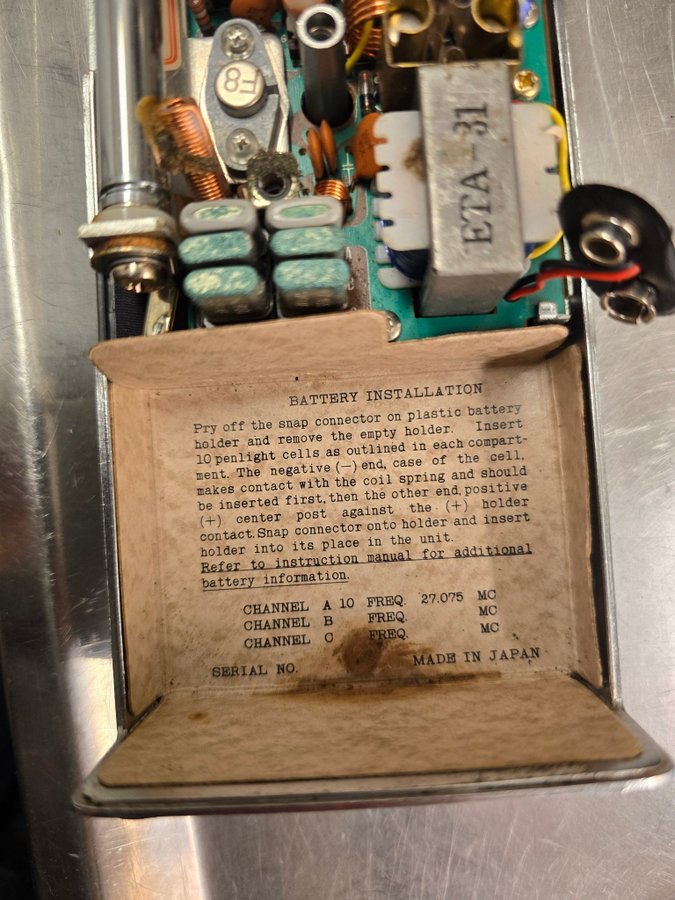 F8
ETA-31
BATTERY INSTALLATION
Pry off the snap connector on plastic battery
holder and remove the empty holder. Insert
10 penlight cells as outlined in each compart-
ment. The negative (—) end, case of the cell,
makes contact with the coil spring and should
be inserted first, then the other end, positive
(+) center post against the (+) holder
contact. Snap connector onto holder and insert
holder into its place in the unit.
Refer to instruction manual for additional
battery information.
CHANNEL A 10 FREQ. 27.075 MC
CHANNEL B FREQ. MC
CHANNEL C FREQ. MC
SERIAL NO. MADE IN JAPAN